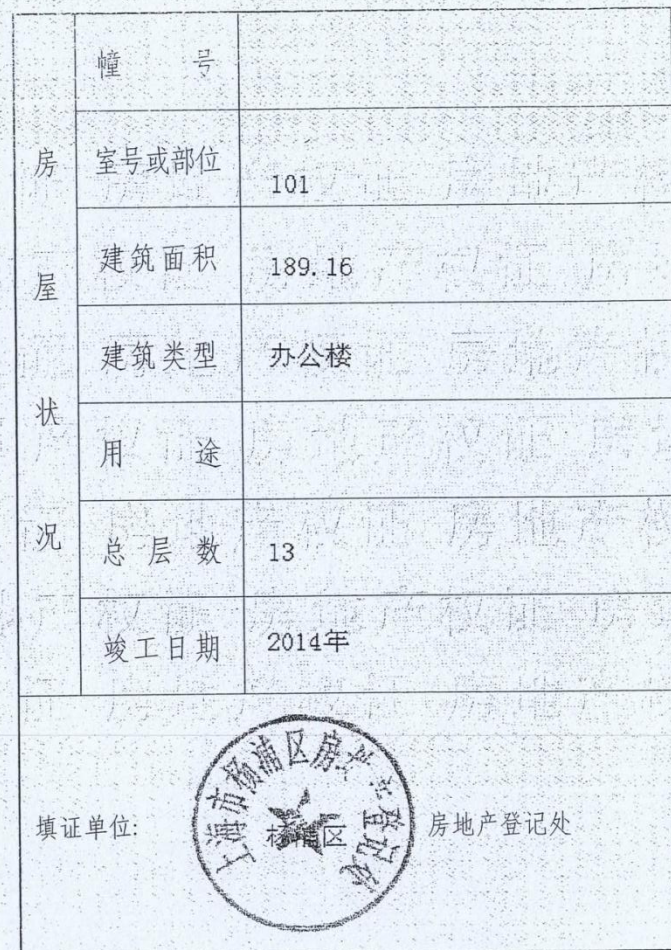 房屋状况
幢 号
室号或部位 101
建筑面积 189.16
建筑类型 办公楼
用 途
总层数 13
竣工日期 2014年
填证单位: 杨浦区 房地产登记处
上海市杨浦区房地产登记处